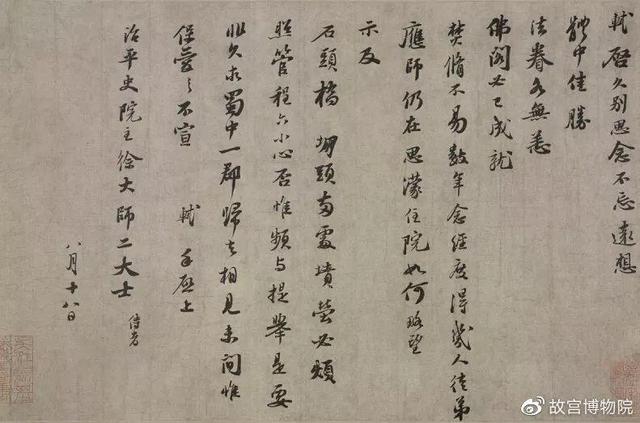 軾啓久別思念不忘遠想
體中佳勝
法眷各無恙
佛閣必已成就
焚脩不易數年念經度得幾人徒弟
應師仍在思濛住院如何略望
示及
石頭橋堋頭兩處墳塋必煩
照管程六小心否惟頻與提舉是要
非久求蜀中一郡歸去相見未間惟
保愛之不宣 軾手啟上
治平史院主徐大師二大士 侍者
八月十八日
故宫博物院